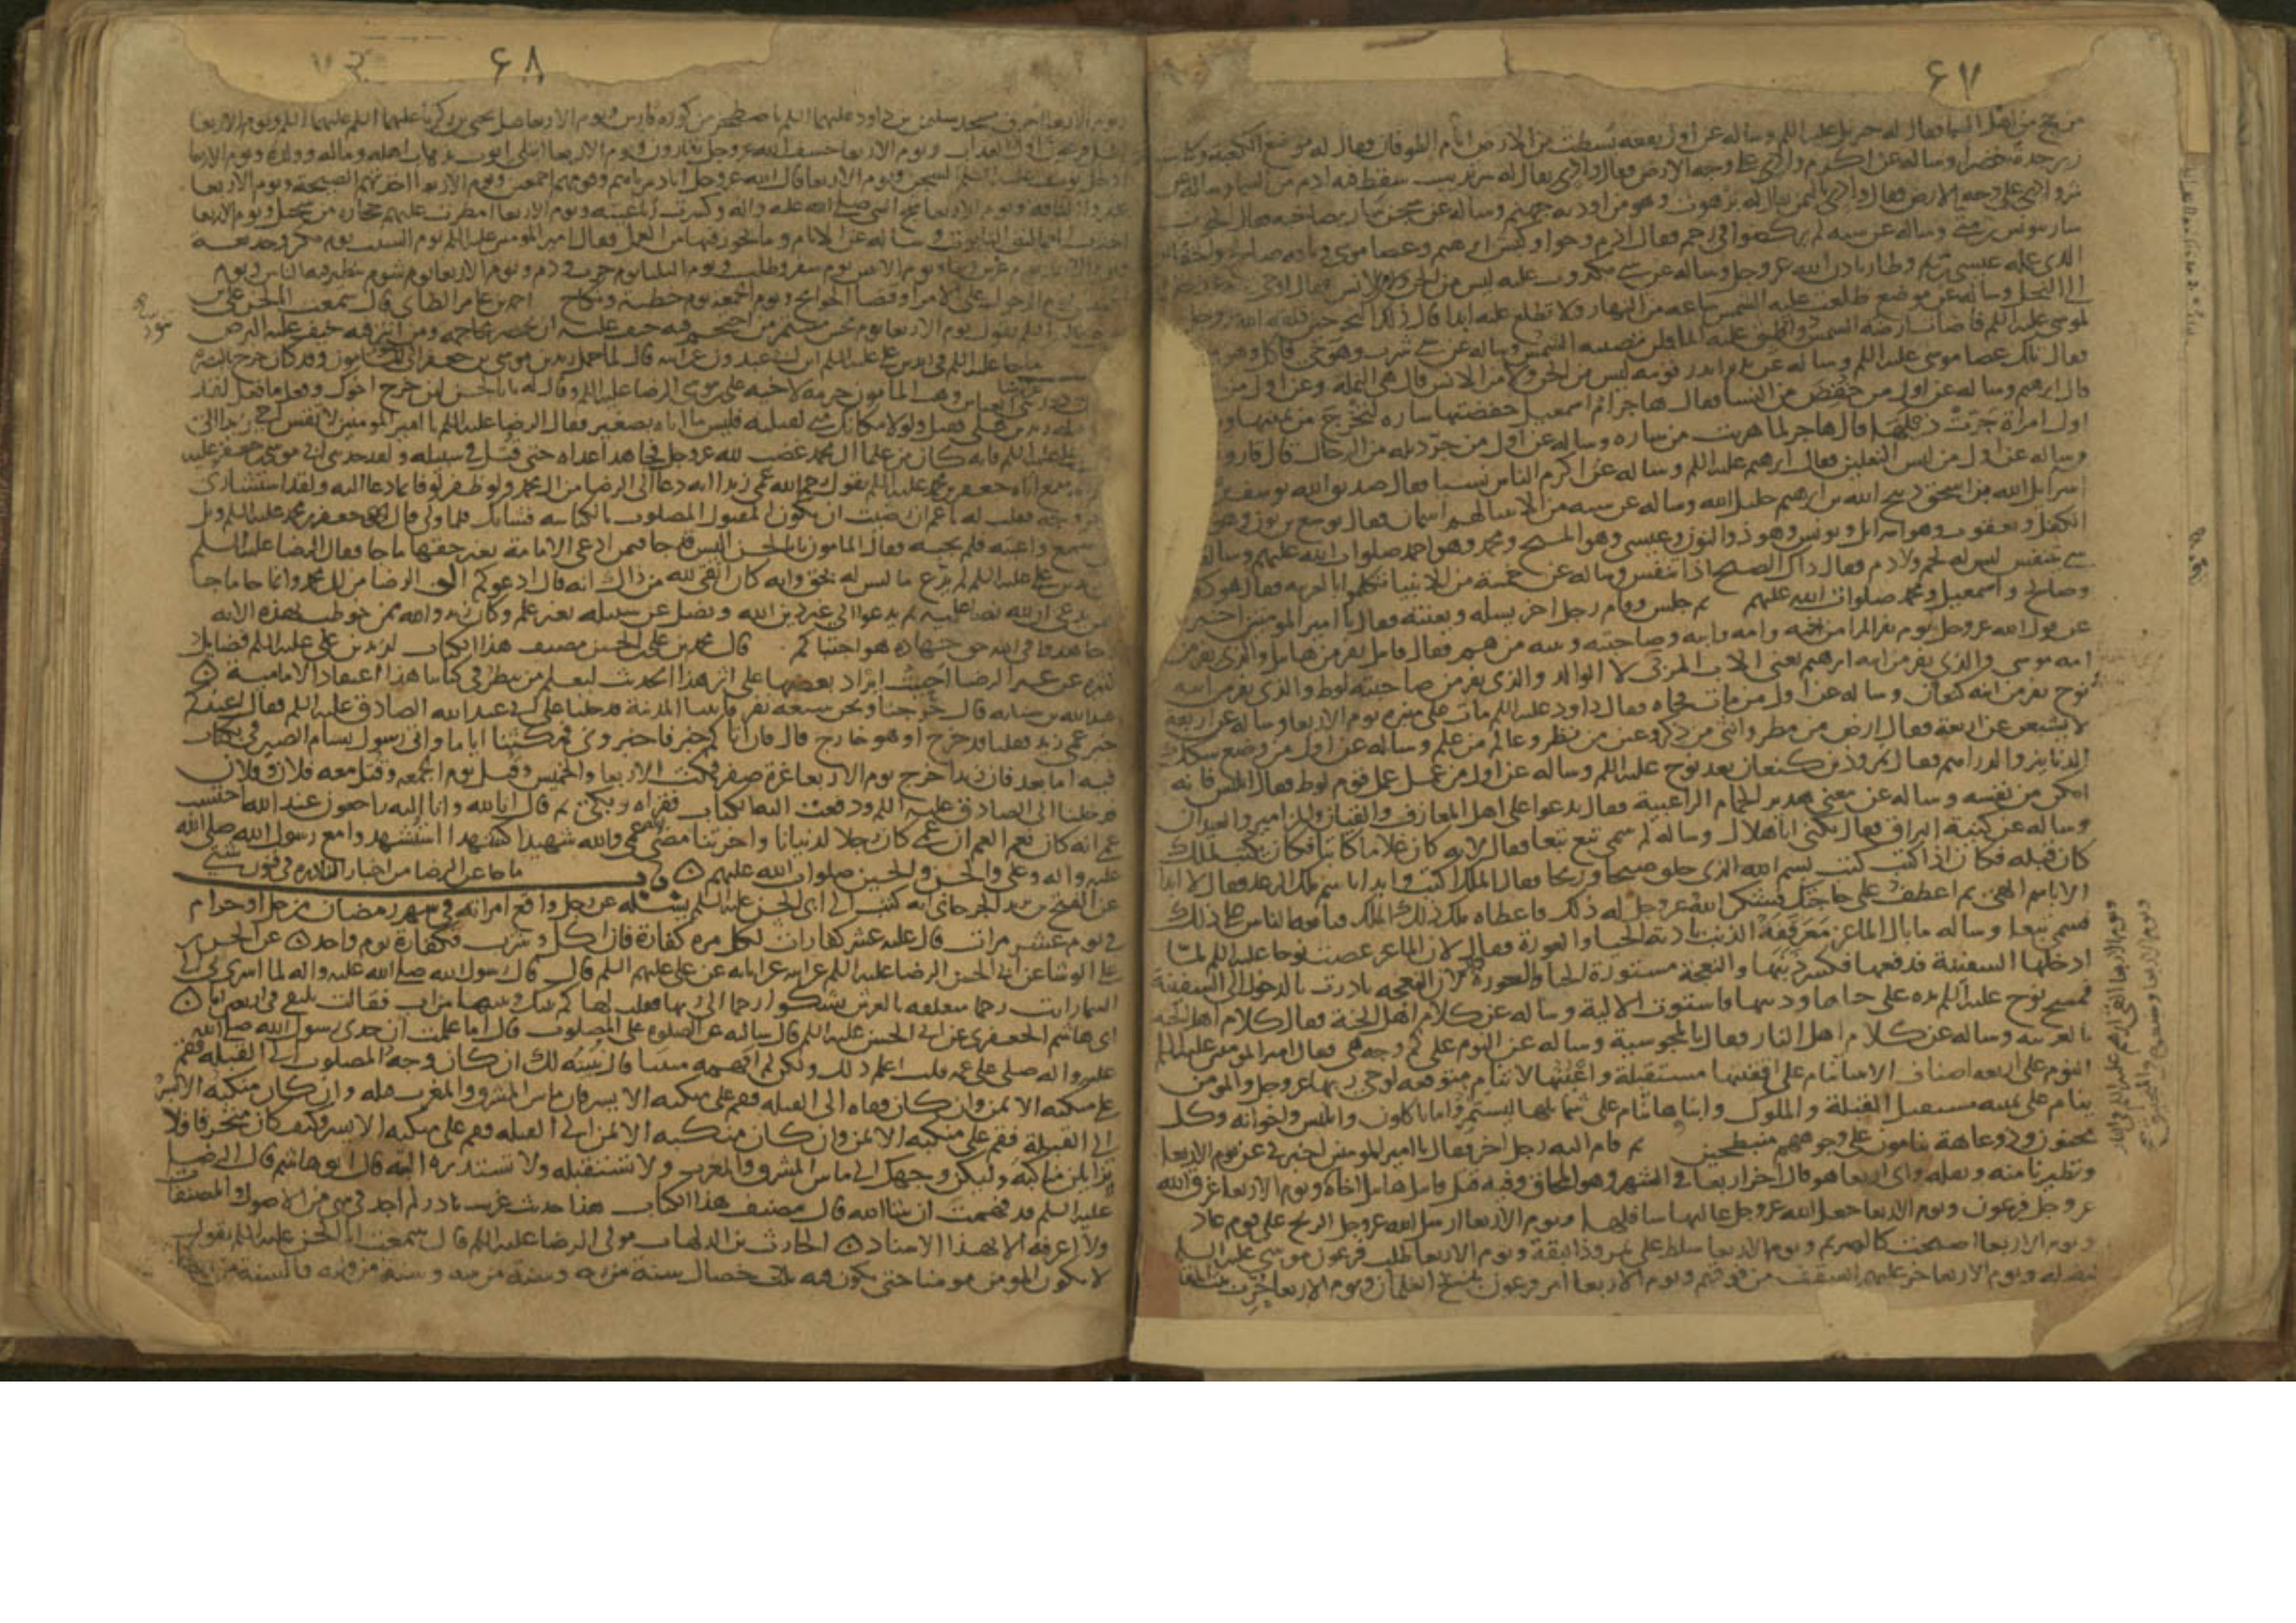 ۶۷
من حج من اهل السما فقال له جبريل عليه السلم وساله عن اول بقعه بسطت من الارض ايام الطوفان فقال له موضع الكعبة وكانت
زبرجدة خضرا وساله عن اكرم واد على وجه الارض فقال واد يقال له سرنديب سقط فيه ادم من السما وساله عن
شر واد على وجه الارض فقال واد باليمن يقال له برهوت وهو من اودية جهنم وساله عن سجن سار بصاحبه فقال الحوت
سار بيونس بن متى وساله عن سته لم يركضوا في رحم فقال ادم وحوا وكبش ابرهيم وعصا موسى وناقه صالح والخفاش
الذي عمله عيسى بن مريم وطار باذن الله عز وجل وساله عن شي مكذوب عليه ليس من الجن ولا من الانس فقال
وساله عن موضع طلعت عليه الشمس ساعه من النهار ولا تطلع عليه ابدا قال ذلك البحر حين فلقه الله عز وجل
لموسى عليه السلم فاصابت ارضه الشمس واطبق عليه الما فلن تصيبه الشمس وساله عن شي شرب وهو حي واكل وهو
فقال تلك عصا موسى عليه السلم وساله عن نذير انذر قومه ليس من الجن ولا من الانس قال هي النملة وعن اول من
قال ابرهيم وساله عن اول من خفض من النسا فقال هاجر ام اسمعيل خفضتها ساره لتخرج من يمينها
اول امراة جرت ذيلها قال هاجر لما هربت من ساره وساله عن اول من جر ذيله من الرجال قال قارون
وساله عن اول من لبس النعلين فقال ابرهيم عليه السلم وساله عن اكرم الناس نسبا فقال صديق الله يوسف
اسرائيل الله بن اسحق ذبيح الله بن ابرهيم خليل الله وساله عن سته من الانبيا لهم اسمان فقال يوشع بن نون وهو
الكفل ويعقوب وهو اسرائيل ويونس وهو ذو النون وعيسى وهو المسيح ومحمد وهو احمد صلوات الله عليهم وساله
شي تنفس ليس له لحم ولا دم فقال ذاك الصبح اذا تنفس وساله عن خمسة من الانبيا تكلموا بالعربيه فقال هود
وصالح واسمعيل ومحمد صلوات الله عليهم ثم جلس وقام رجل اخر يسله ويعنته فقال يا امير المومنين اخبرني
عن قول الله عز وجل يوم يفر المرا من اخيه وامه وابيه وصاحبته وبنيه من هم فقال قابيل يفر من هابيل والذي يفر من
امه موسى والذي يفر من ابيه ابرهيم يعني الاب المربي لا الوالد والذي يفر من صاحبته لوط والذي يفر من ابنه
نوح يفر من ابنه كنعان وساله عن اول من مات فجاه فقال داود عليه السلم مات على منبره يوم الاربعا وساله عن اربعة
لا يشبعن من اربعة فقال ارض من مطر وانثى من ذكر وعين من نظر وعالم من علم وساله عن اول من وضع سكك
الدنانير والدراهم فقال نمروذ بن كنعان بعد نوح عليه السلم وساله عن اول من عمل عمل قوم لوط فقال ابليس فانه
امكن من نفسه وساله عن معنى هدير الحمام الراعبية فقال يدعوا على اهل المعازف والقينات والمزامير والعيدان
وساله عن كنية البراق فقال يكنى اباهلال وساله لم سمي تبع تبعا فقال لانه كان غلاما كاتبا فكان يكتب لملك
كان قبله فكان اذا كتب كتب بسم الله الذي خلق صبحا وريحا فقال الملك اكتب وابدا باسم ملك الرعد فقال لا ابدا
الا باسم الهي ثم اعطف على حاجتك فشكر الله عز وجل له ذلك فاعطاه ملك ذلك الملك فتابعه الناس على ذلك
فسمي تبعا وساله ما بال الماعز مفرقعة الذنب بادية الحيا والعورة فقال لان الماعز عصت نوحا عليه السلم لما
ادخلها السفينة فدفعها فكسر ذنبها والنعجة مستورة الحيا والعورة لان النعجه بادرت بالدخول الى السفينة
فمسح نوح عليه السلم يده على حياها وذنبها فاستوت الالية وساله عن كلام اهل الجنة فقال كلام اهل الجنه
بالعربيه وساله عن كلام اهل النار فقال بالمجوسية وساله عن النوم على كم وجه هي فقال امير المومنين عليه السلم
النوم على اربعه اصناف الانبيا تنام على اقفيتها مستقبلة واعينها لا تنام متوقعه لوحي ربها عز وجل والمومن
ينام على يمينه مستقبل القبلة والملوك وابناها تنام على شمايلها ليستمروا ما ياكلون وابليس واخوانه وكل
مجنون وذو عاهة ينامون على وجوههم منبطحين ثم قام اليه رجل اخر فقال يا امير المومنين اخبرني عن يوم الاربعا
وتطيرنا منه وثقله واي اربعا هو قال اخر اربعا في الشهر وهو المحاق وفيه قتل قابيل هابيل اخاه ويوم الاربعا غرق الله
عز وجل فرعون ويوم الاربعا جعل الله عز وجل عاليها سافلها ويوم الاربعا ارسل الله عز وجل الريح على قوم عاد
ويوم الاربعا اصبحت كالصريم ويوم الاربعا سلط على نمروذ البقة ويوم الاربعا طلب فرعون موسى عليه السلم
ليقتله ويوم الاربعا خر عليهم السقف من فوقهم ويوم الاربعا امر فرعون بذبح الغلمان ويوم الاربعا خرب بيت المقدس
ويوم الاربعا القي ابرهيم عليه السلم في النار
ويوم الاربعا وضعوه في المنجنيق صح
۶۸
ويوم الاربعا احرق مسجد سليمن بن داود عليهما السلم باصطخر من كورة فارس ويوم الاربعا قتل يحيى بن زكريا عليهما السلم ويوم الاربعا
اظل قوم فرعون اول العذاب ويوم الاربعا خسف الله عز وجل بقارون ويوم الاربعا ابتلي ايوب بذهاب اهله وماله وولده ويوم الاربعا
ادخل يوسف عليه السلم السجن ويوم الاربعا قال الله عز وجل انا دمرناهم وقومهم اجمعين ويوم الاربعا اخذتهم الصيحة ويوم الاربعا
عقروا الناقه ويوم الاربعا شج النبي صلى الله عليه واله وكسرت رباعيته ويوم الاربعا امطرت عليهم حجارة من سجيل ويوم الاربعا
اخذت العماليق التابوت وساله عن الايام وما يجوز فيها من العمل فقال امير المومنين عليه السلم يوم السبت يوم مكر وخديعه
ويوم الاحد يوم غرس وبنا ويوم الاثنين يوم سفر وطلب ويوم الثلثا يوم حرب ودم ويوم الاربعا يوم شوم يتطير فيه الناس ويوم
الخميس يوم الدخول على الامرا وقضا الحوايج ويوم الجمعه يوم خطبة ونكاح احمد بن عامر الطاي قال سمعت ابا الحسن علي بن
ما جا عن علي عليه السلم في زيد بن علي عليه السلم ابن ابي عبدون عن ابيه قال لما حمل زيد بن موسى بن جعفر الى المامون وقد كان خرج بالبصره
وهب المامون جرمه لاخيه علي بن موسى الرضا عليه السلم وقال له يا ابا الحسن لين خرج اخوك وفعل ما فعل لقد
زيد بن علي فقتل ولولا مكانك مني لقتلته فليس ما اتاه بصغير فقال الرضا عليه السلم يا امير المومنين لا تقس اخي زيدا الى
زيد بن علي عليه السلم فانه كان من علما ال محمد غضب لله عز وجل فجاهد اعداه حتى قتل في سبيله ولقد حدثني ابي موسى بن جعفر عليه
السلم انه سمع اباه جعفر بن محمد عليه السلم يقول رحم الله عمي زيدا انه دعا الى الرضا من ال محمد ولو ظفر لوفا بما دعا اليه ولقد استشارني
في خروجه فقلت له يا عم ان رضيت ان تكون المقتول المصلوب بالكناسه فشانك فلما ولى قال جعفر بن محمد عليه السلم ويل
لمن سمع واعيته فلم يجبه فقال المامون يا ابا الحسن اليس قد جا فيمن ادعى الامامة بغير حقها ما جا فقال الرضا عليه السلم
ان زيد بن علي عليه السلم لم يدع ما ليس له بحق وانه كان اتقى لله من ذاك انه قال ادعوكم الى الرضا من ال محمد وانما جا ما جا
فيمن يدعي ان الله نص عليه ثم يدعوا الى غير دين الله ويضل عن سبيله بغير علم وكان زيد والله ممن خوطب بهذه الايه
وجاهدوا في الله حق جهاده هو اجتباكم قال محمد بن علي بن الحسين مصنف هذا الكتاب لزيد بن علي عليه السلم فضايل
كثيره عن غير الرضا احببت ايراد بعضها على اثر هذا الحديث ليعلم من ينظر في كتابنا هذا اعتقاد الامامية
عبد الله بن سيابه قال خرجنا ونحن سبعه نفر فاتينا المدينة فدخلنا على ابي عبد الله الصادق عليه السلم فقال اعندكم
خبر عمي زيد فقلنا قد خرج او هو خارج قال فان اتاكم خبر فاخبروني فمكثنا اياما واتى رسول بسام الصيرفي بكتاب
فيه اما بعد فان زيدا خرج يوم الاربعا غرة صفر فمكث الاربعا والخميس وقتل يوم الجمعه وقتل معه فلان وفلان
فدخلنا الى الصادق عليه السلم ودفعت اليه الكتاب فقراه وبكى ثم قال انا لله وانا اليه راجعون عند الله احتسب
عمي انه كان نعم العم ان عمي كان رجلا لدنيانا واخرتنا مضى عمي والله شهيدا كشهدا استشهدوا مع رسول الله صلى الله
عليه واله وعلي والحسن والحسين صلوات الله عليهم ما جا عن الرضا من اخبار النادره في فنون شتى
عن الفتح بن يزيد الجرجاني انه كتب الى ابي الحسن عليه السلم يسله عن رجل واقع امراته في شهر رمضان من حل او حرام
في يوم عشر مرات قال عليه عشر كفارات لكل مره كفارة فان اكل وشرب فكفارة يوم واحد عن الحسن بن
علي الوشا عن ابي الحسن الرضا عليه السلم عن ابيه عن ابايه عن علي عليهم السلم قال قال رسول الله صلى الله عليه واله لما اسري بي الى
السما رايت رحما معلقه بالعرش تشكوا رحما الى ربها فقلت لها كم بينك وبينها من اب فقالت نلتقي في اربعين ابا
ابي هاشم الجعفري عن ابي الحسن عليه السلم قال سالته عن الصلوه على المصلوب قال اما علمت ان جدي رسول الله صلى الله
عليه واله صلى على عمه قلت اعلم ذلك ولكن لم افهمه مبينا قال نبينه لك ان كان وجه المصلوب الى القبله فقم
على منكبه الايمن وان كان قفاه الى القبله فقم على منكبه الايسر فان ما بين المشرق والمغرب قبله وان كان منكبه الايسر
الى القبلة فقم على منكبه الايمن وان كان منكبه الايمن الى القبله فقم على منكبه الايسر وكيف كان منحرفا فلا
تزايلن مناكبه وليكن وجهك الى ما بين المشرق والمغرب ولا تستقبله ولا تستدبره البته قال ابو هاشم قال الرضا
عليه السلم قد فهمت ان شا الله قال مصنف هذا الكتاب هذا حديث غريب نادر لم اجده في شي من الاصول والمصنفات
ولا اعرفه الا بهذا الاسناد الحارث بن الدلهاث مولى الرضا عليه السلم قال سمعت ابا الحسن عليه السلم يقول
لا يكون المومن مومنا حتى يكون فيه ثلث خصال سنة من ربه وسنة من نبيه وسنة من وليه فالسنة من ربه